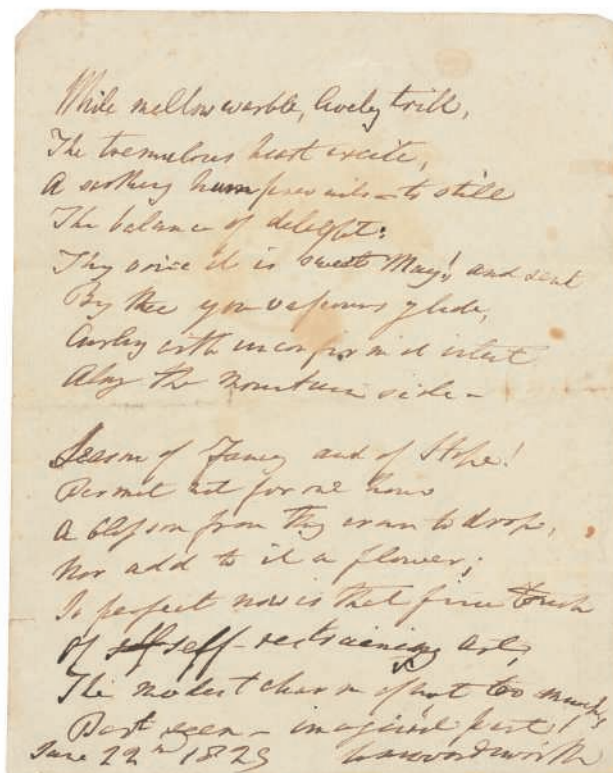 While mellow warble, lively trill,
The tremulous heart excite,
A soothing hum prevails – to still
The balance of delight:
Thy voice it is sweet May! and sent
By thee yon vapours glide,
Curling with unconfirmed intent
Along the mountain side –
Season of Fancy and of Hope!
Permit not for one hour
A blossom from thy crown to drop,
Nor add to it a flower;
So perfect now is that fine touch
Of self self-restraining art,
The modest charm of not too much,
Part seen – imagined part!
June 22nd 1825 Wm Wordsworth